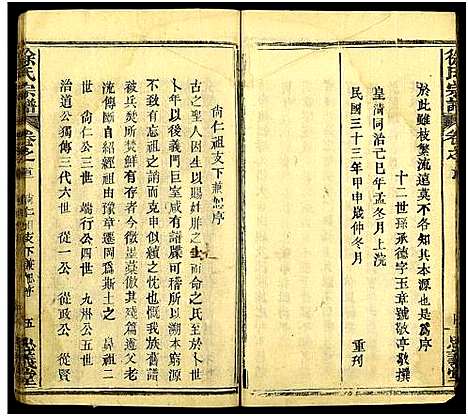 徐氏宗譜
卷之首
於此雖枝繁流遠莫不各知其本源也是爲序
十二世孫承德字玉章號敬亭敬撰
皇清同治己巳年孟冬月上浣
民國三十三年甲申歲仲冬月
重刊
尙仁祖支下兼恕序
古之聖人因生以賜姓胙之土而命之氏至於卜世
卜年以後義門巨室咸有譜牒可稽所以溯本窮源
不致有忘祖之誚而克申似續之念也前譜
被兵焚所焚鮮有存者今徵墨蒙倣其殘篇遵父老
流傳斷自我公由豫章遷於 爲斯土之 鼻祖二
世 尙仁公三世 端行公四世 九州公五世
治道公獨傳三代六世 從一公 從政公 從賢
徐氏宗譜
卷之首
尙仁支下兼恕序
五
忠義堂
忠義堂